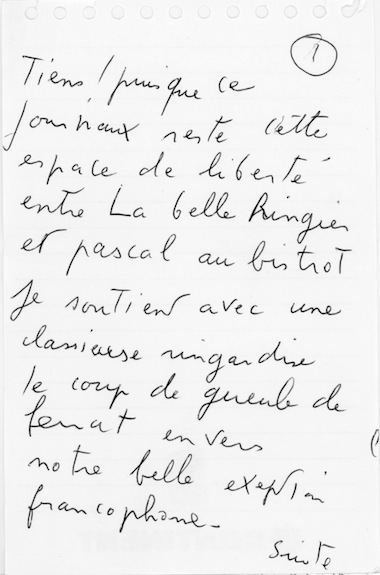 1
Tiens ! puisque ce
journaux reste cette
espace de liberté
entre La belle Ringier
et pascal au bistrot
Je soutient avec une
classieuse ringardise
le coup de gueule de
ferrat envers
notre belle exeption
francophone.
Suite